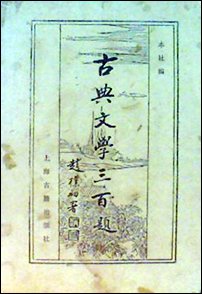 本社编
古典文學三百題
趙樸初署
上海古籍出版社